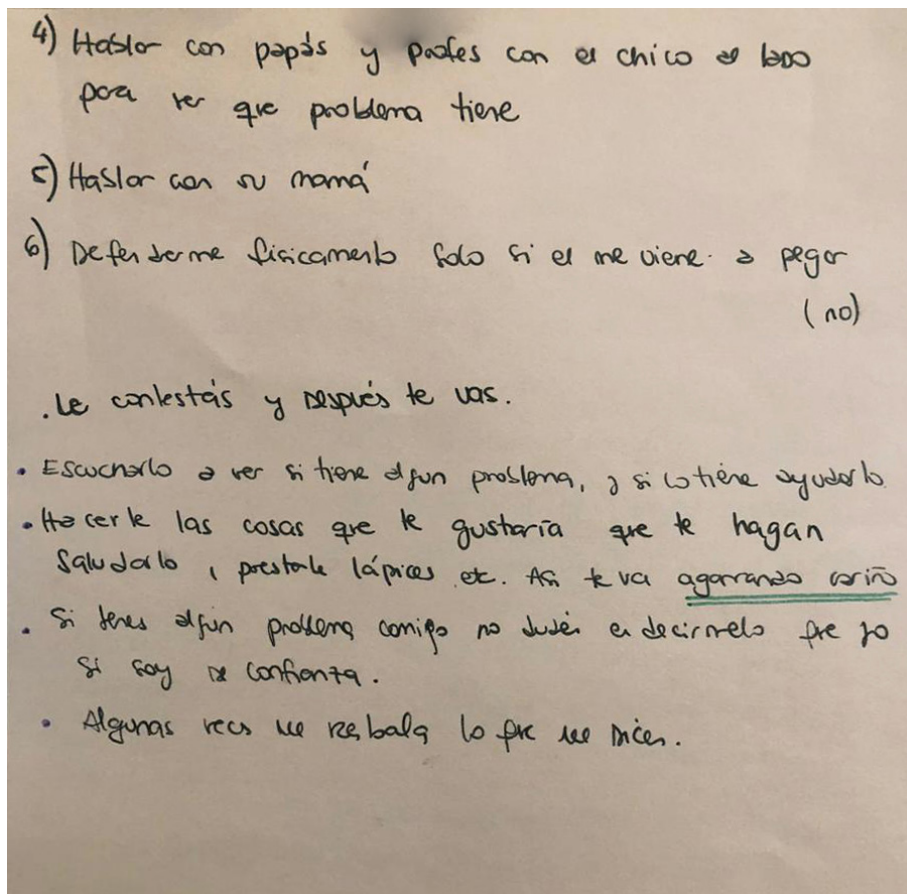 4) Hablar con papás y profes con el chico al lado
para ver que problema tiene
5) Hablar con su mamá
6) Defenderme fisicamente solo si el me viene a pegar
(no)
. Le contestás y después te vas.
• Escucharlo a ver si tiene algun problema, y si lo tiene ayudarlo
• Hacerle las cosas que te gustaría que te hagan
Saludarlo, prestarle lápices etc. Asi te va agarrando cariño
. Si tenes algun problema conmigo no dudes en decirmelo que yo
si soy de confianza.
• Algunas veces me resbala lo que me dicen.